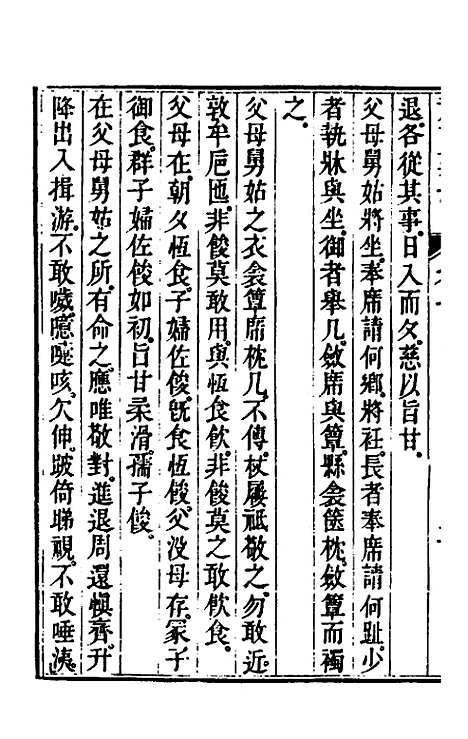 退。各從其事。日入而夕。慈以旨甘。
父母舅姑將坐。奉席請何鄉。將衽。長者奉席請何趾。少
者執牀與坐。御者舉几。斂席與簟。縣衾篋枕。斂簟而襡
之。
父母舅姑之衣衾簟席枕几不傳。杖屨祗敬之。勿敢近。
敦牟巵匜。非餕莫敢用。與恆食飮。非餕莫之敢飮食。
父母在。朝夕恆食。子婦佐餕。旣食恆餕。父没母存。冡子
御食。羣子婦佐餕如初。旨甘柔滑。孺子餕。
在父母舅姑之所。有命之。應唯敬對。進退周還愼齊。升
降出入揖游。不敢噦噫嚏咳。欠伸。跛倚睇視。不敢唾洟。